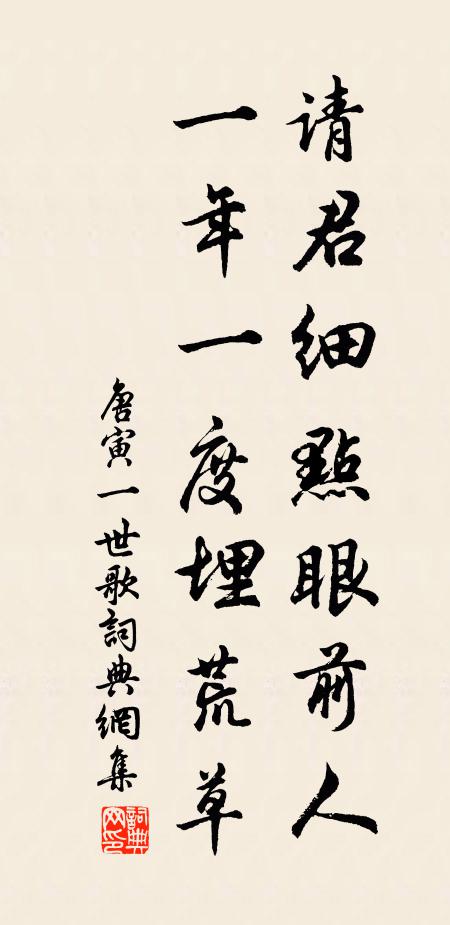 请君细點眼前人
一年一度埋荒草
唐寅一世歌詞典網集
詞典网印